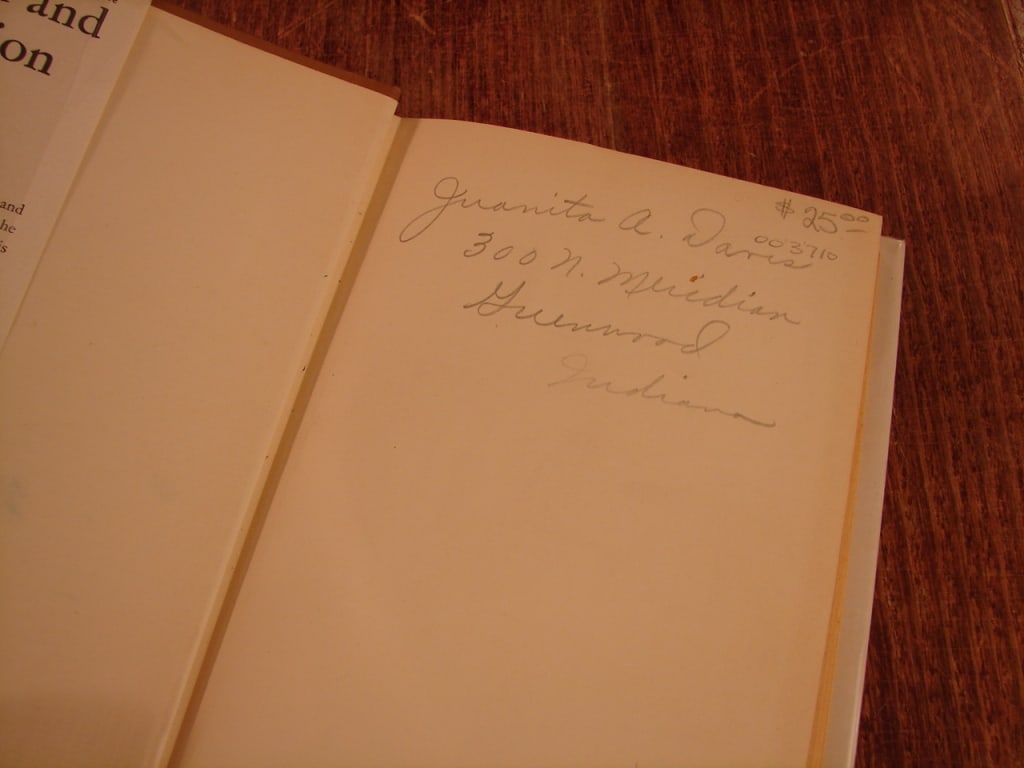 and
on
and
he
s
$ 25.00
003710
Juanita A. Davis
300 N. Meridian
Greenwood
Indiana